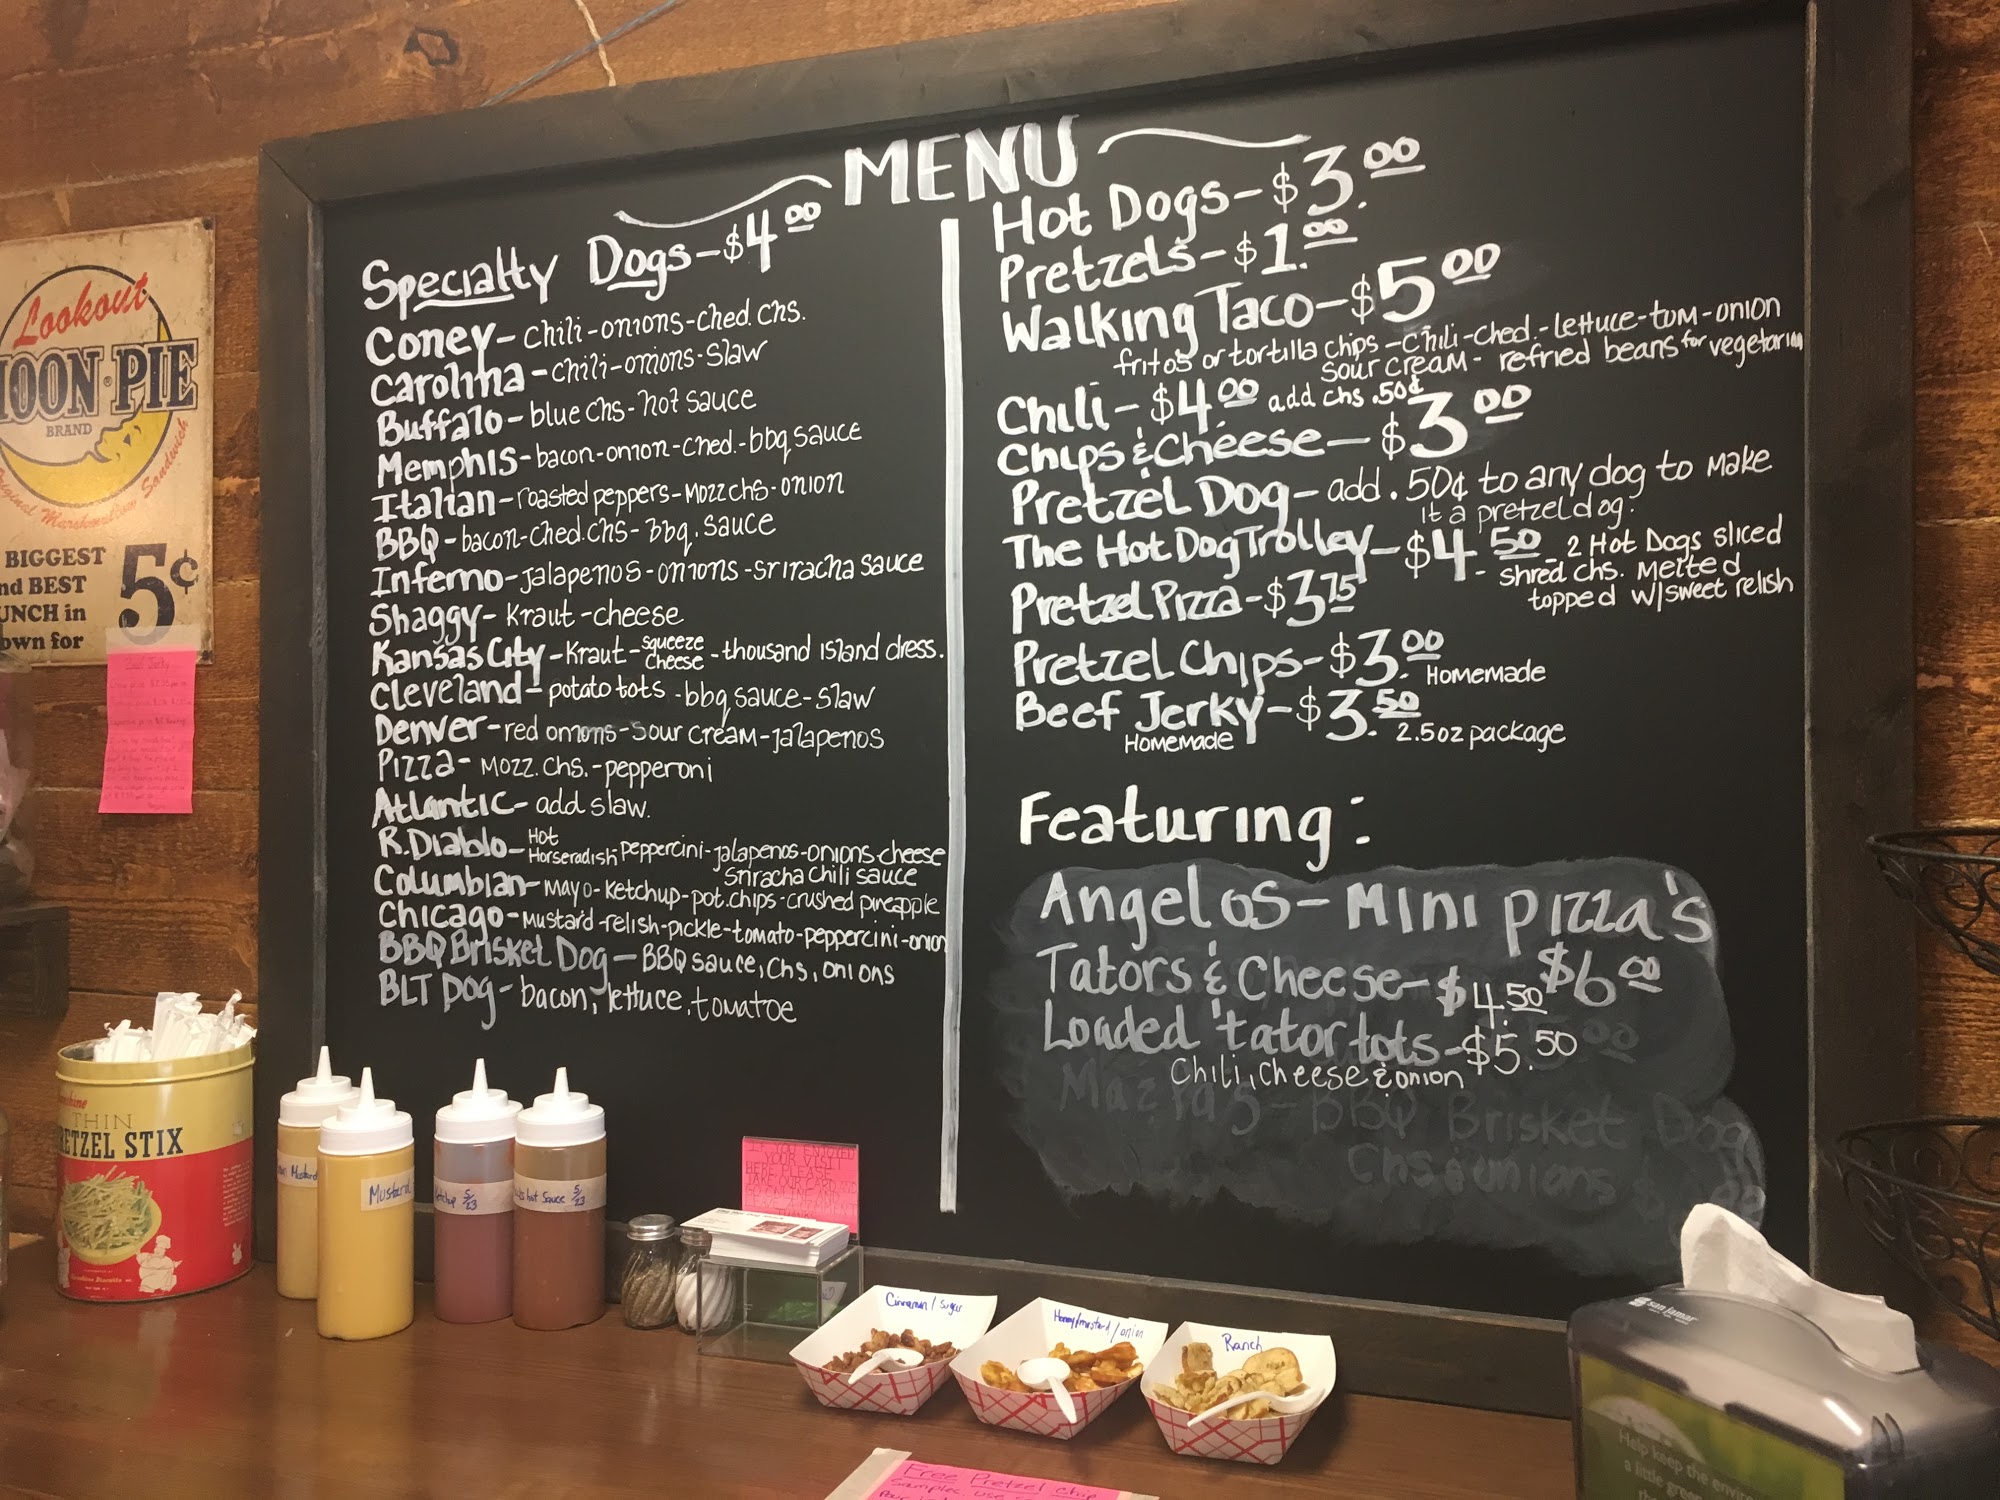 MENU
Specialty Dogs-$4.00
Coney-chili-onions-ched.chs.
Carolina-chili-onions-slaw
Buffalo-blue chs-hot sauce
Memphis-bacon-onion-ched.-bbq sauce
Italian-roasted peppers-mozz chs-onion
BBQ-bacon-ched.chs-bbq.sauce
Inferno-jalapenos-onions-sriracha sauce
Shaggy-Kraut-cheese
Kansas City-Kraut-squeeze cheese-thousand island dress.
Cleveland-potato tots-bbq sauce-slaw
Denver-red onions-sour cream-jalapenos
Pizza-mozz.chs.-pepperoni
Atlantic-add slaw.
R.Diablo-Hot Horseradish peppercini-jalapenos-onions-cheese
Sriracha Chili sauce
Columbian-mayo-ketchup-pot.chips-crushed pineapple
Chicago-mustard-relish-pickle-tomato-peppercini-onion
BBQ Brisket Dog-BBQ sauce, chs, onions
BLT Dog-bacon, lettuce, tomatoe
Hot Dogs-$3.00
Pretzels-$1.00
Walking Taco-$5.00
fritos or tortilla chips-chili-ched.-lettuce-tom-onion
sour cream-refried beans for vegetarian
Chili-$4.00 add chs .50¢
Chips & Cheese-$3.00
Pretzel Dog-add .50¢ to any dog to make
it a pretzel dog.
The Hot Dog Trolley-$4.50-2 Hot Dogs sliced
-shred chs. melted
topped w/sweet relish
Pretzel Pizza-$3.75
Pretzel Chips-$3.00 Homemade
Beef Jerky-$3.50
Homemade 2.5oz package
Featuring:
Angelos-Mini pizza's
$6.00
Tators & Cheese-$4.50
Loaded 'tator tots-$5.50
Chili, cheese & onion
BBQ Brisket Dog
Chs & onions
Lookout
MOON PIE
BRAND
Original Marshmallow Sandwich
BIGGEST
and BEST
LUNCH in
town for
5¢
Beef Jerky
THIN
PRETZEL STIX
Mustard
Mustard
Ketchup 5/23
hot Sauce 5/23
IF YOU ENJOYED
YOUR VISIT
HERE PLEASE
TAKE OUR CARD
Cinnamon/Sugar
Honey/mustard/onion
Ranch
Free Pretzel Chip
Samples use
san jamar
Help keep the enviro
a little green